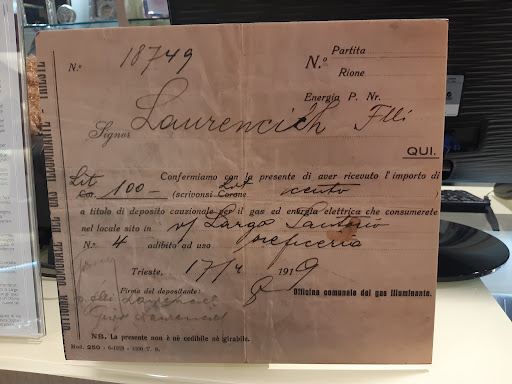 N.º 18749
Partita
N.º
Rione
Energia P. Nr.
Signor Laurencich Flli
QUI.
Confermiamo con la presente di aver ricevuto l'importo di
Lit
Co. 100- (scrivonsi Corone Lit cento )
a titolo di deposito cauzionale per il gas ed energia elettrica che consumerete
nel locale sito in v/ Largo Santorio
N.º 4 adibito ad uso oreficeria
Trieste, 17/ 1919
Firma del depositante:
Officina comunale del gas illuminante.
Laurencich
NB. La presente non è nè cedibile nè girabile.
Mod. 250
OFFICINA COMUNALE DEL GAS ILLUMINANTE - TRIESTE